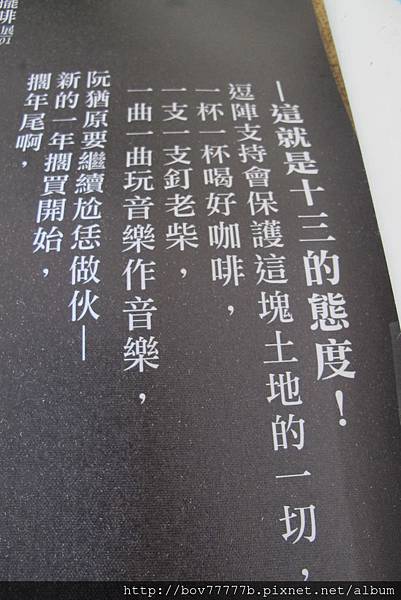 擱年尾啊，
新的一年擱買開始，
阮猶原要繼續尬恁做伙—
一曲一曲玩音樂作音樂，
一支一支釘老柴，
一杯一杯喝好咖啡，
逗陣支持會保護這塊土地的一切，
—這就是十三的態度！
啡展01
http://bov77777b.pixnet.net/album